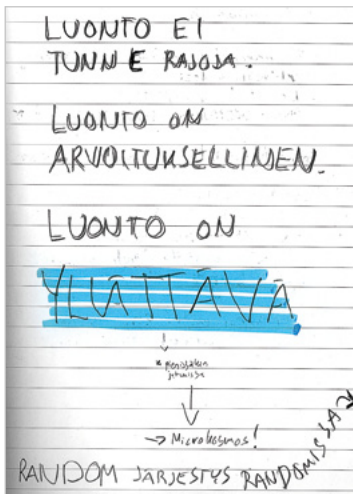 LUONTO EI
TUNNE RAJOJA.
LUONTO ON
ARVOITUKSELLINEN.
LUONTO ON
YLLÄTTÄVÄ
→ Microkosmos!
RANDOM JÄRJESTYS RANDOMISSA